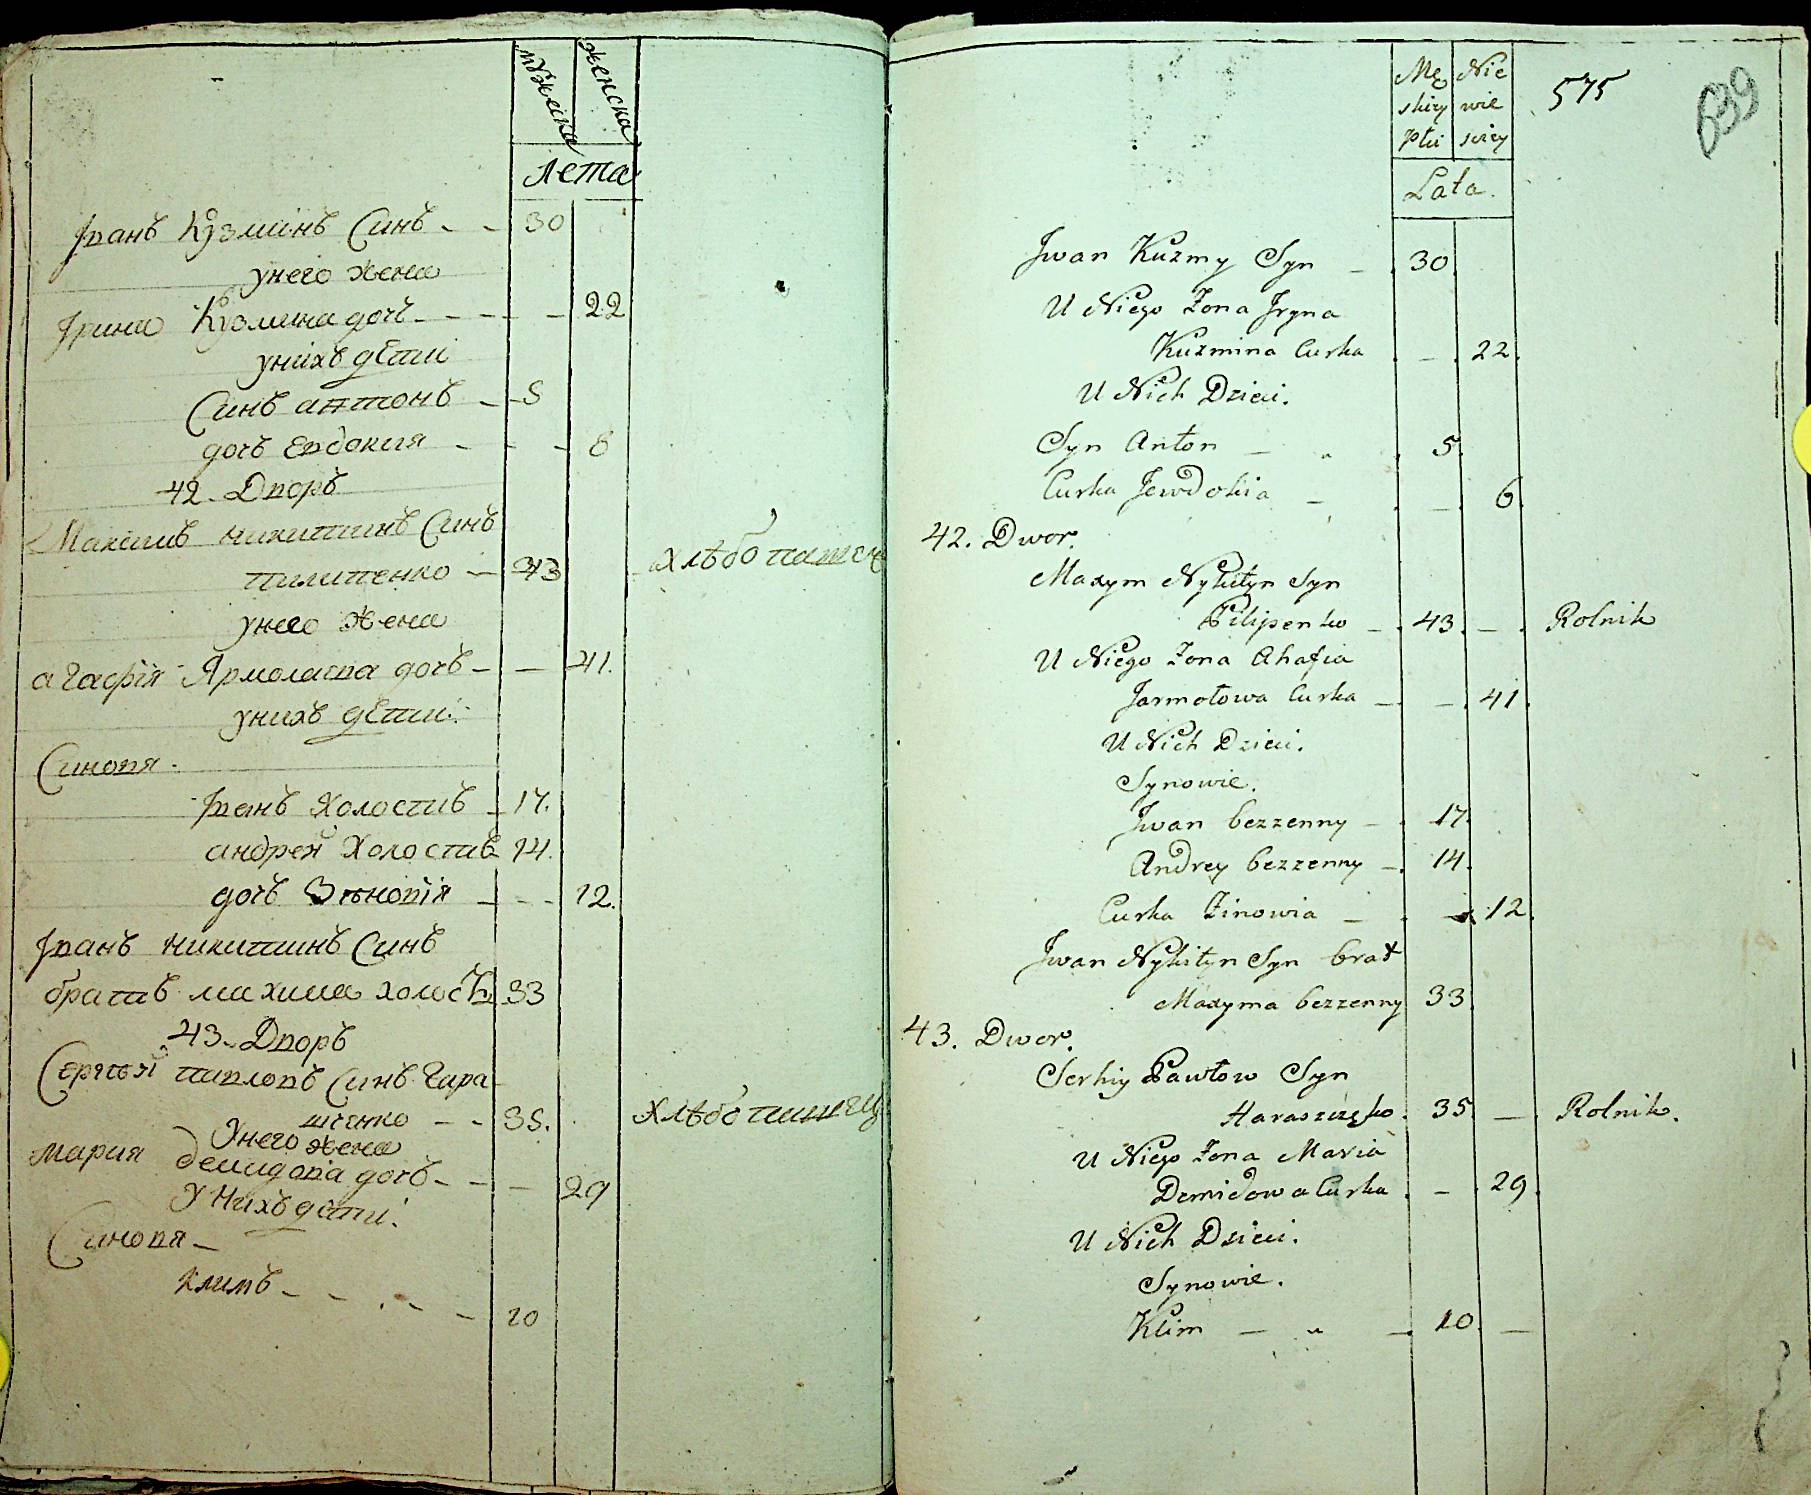 мужеска женска
лета
Іванъ Кузминъ Синъ - - 30
унего жена
Ірина Кузмина дочъ - - - - - 22
унихъ дѣти
Синъ антонъ - 5
дочъ Евдокия - - - 6
42. Дворъ
Максимъ никитинъ Синъ
пилипенко - 43 хлѣбопашец
унего жена
агафія Ярмолаева дочъ - - 41.
унихъ дѣти:
Синовя.
Іванъ холостив - 17.
андрей холостив 14.
дочъ Зѣновія - - - 12.
Іванъ никитинъ Синъ
братъ махима холостъ 33
43. Дворъ
Сергѣй павловъ Синъ Гара
щенко - - 35. хлѣбопашец
унего жена
мария демидова дочъ - - - 29
У нихъ дѣти.
Синовя -
климъ - - . - - 10
Mę Nie 575 639
skiey wie
Płci sciey
Lata.
Jwan Kuzmy Syn - . 30.
U Niego Zona Jryna
Kuzmina Curka . - . 22.
U Nich Dzieci.
Syn Anton - „ . 5.
Curka Jewdokia - . - . 6.
42. Dwor.
Maxym Nykityn Syn
Pilipenko - . 43. - . Rolnik
U Niego Zona Ahafia
Jarmołowa Curka - . - . 41.
U Nich Dzieci.
Synowie.
Jwan bezzenny - . 17.
Andrey bezzenny - . 14.
Curka Zinowia - . - . 12.
Jwan Nykityn Syn brat
Maxyma bezzenny 33.
43. Dwor.
Serhiy Pawłow Syn
Haraszczęko. 35. - Rolnik.
U Niego Zona Maria
Demidowa Curka . - . 29.
U Nich Dzieci.
Synowie.
Klim - „ - . 10. -